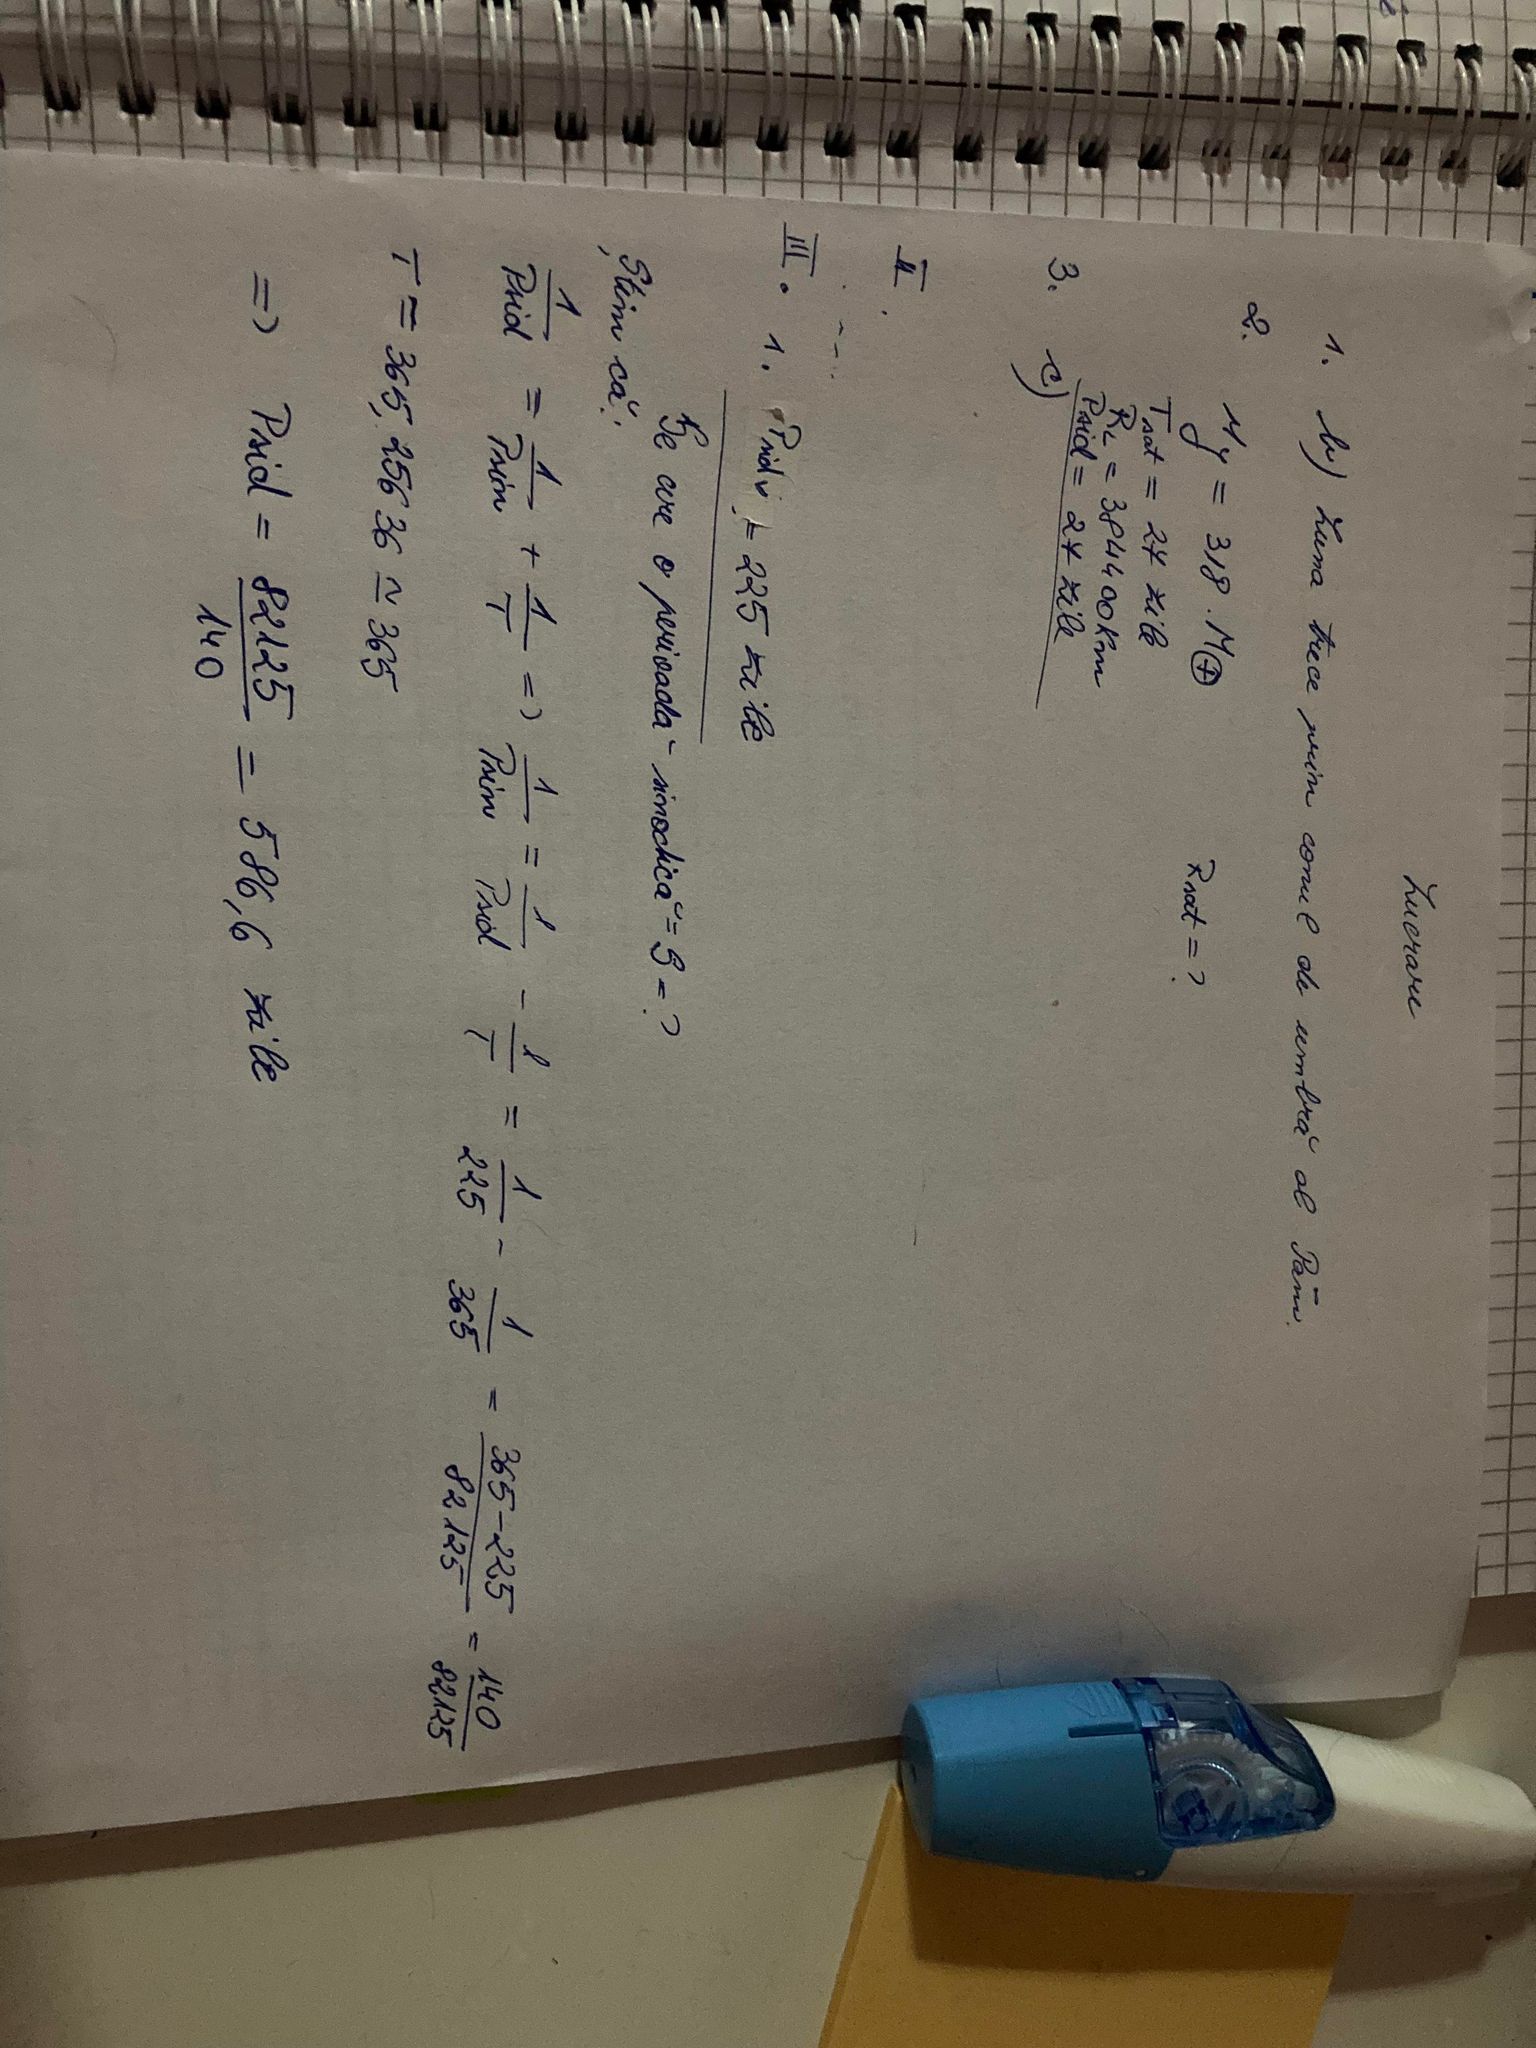 Lucrare
1. b) Luna trece prin conul de umbră al Păm.
2. M♃ = 318 · M⊕
Tsat = 27 zile Rsat = ?
RL = 384400 km
Psid = 27 zile
3. c)
II.
III. 1. Psid v = 225 zile
Ce are o perioadă sinodică = S = ?
Știm că:
1/Psid = 1/Psin + 1/T => 1/Psin = 1/Psid - 1/T = 1/225 - 1/365 = 365-225/82125 = 140/82125
T = 365,25636 ≃ 365
=> Psid = 82125/140 = 586,6 zile